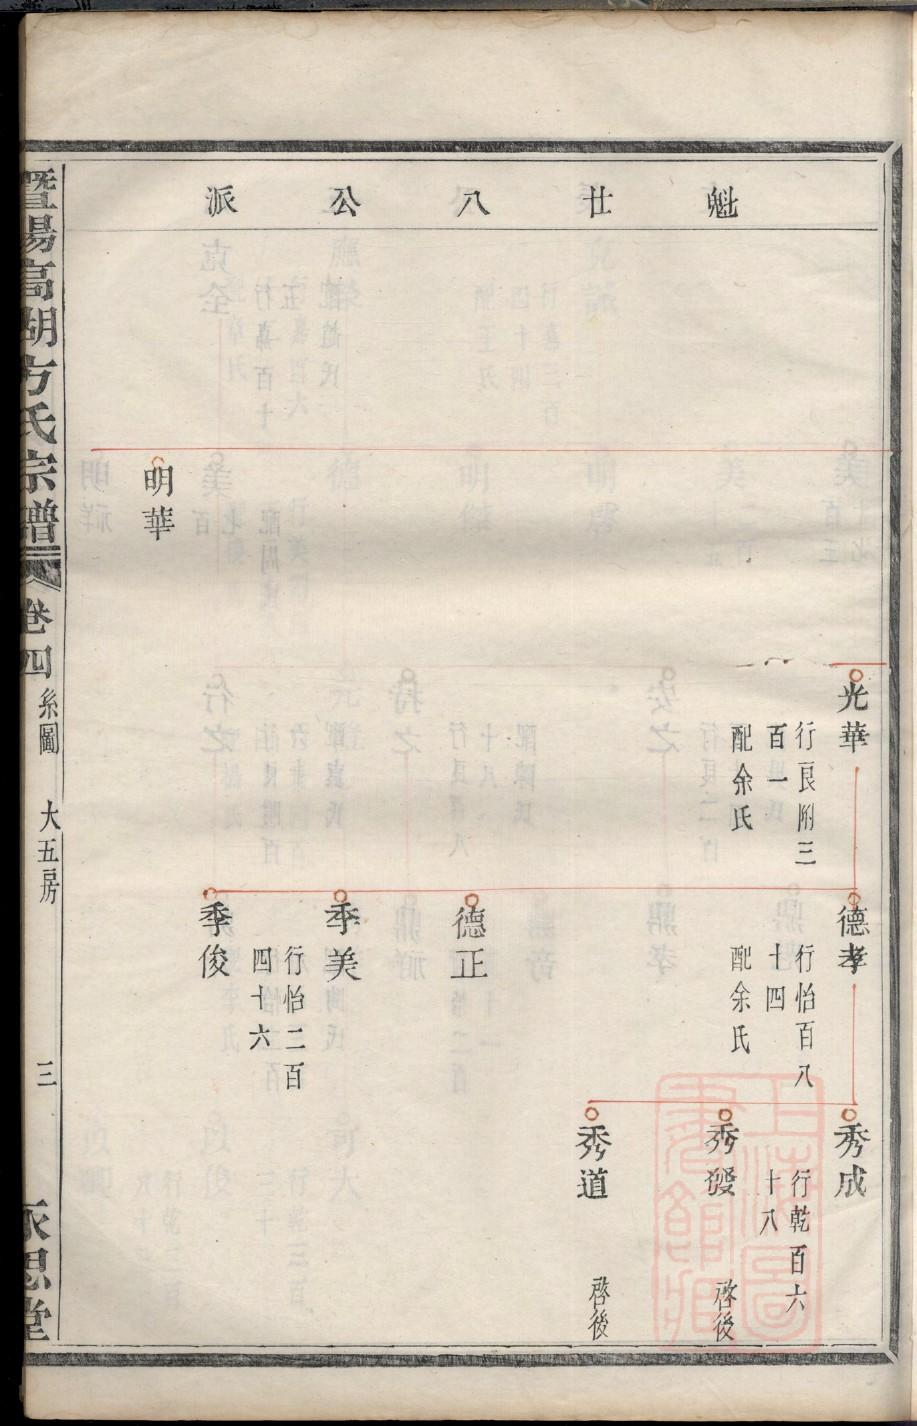 魁廿八公派
光華
行良附三
百一
配余氏
明華
德孝
行怡百八
十四
配余氏
德正
季美
行怡二百
四十六
季俊
秀成
行乾百六
十八
秀發
啓後
秀道
啓後
暨陽高湖方氏宗譜
卷四
系圖
大五房
三
永思堂